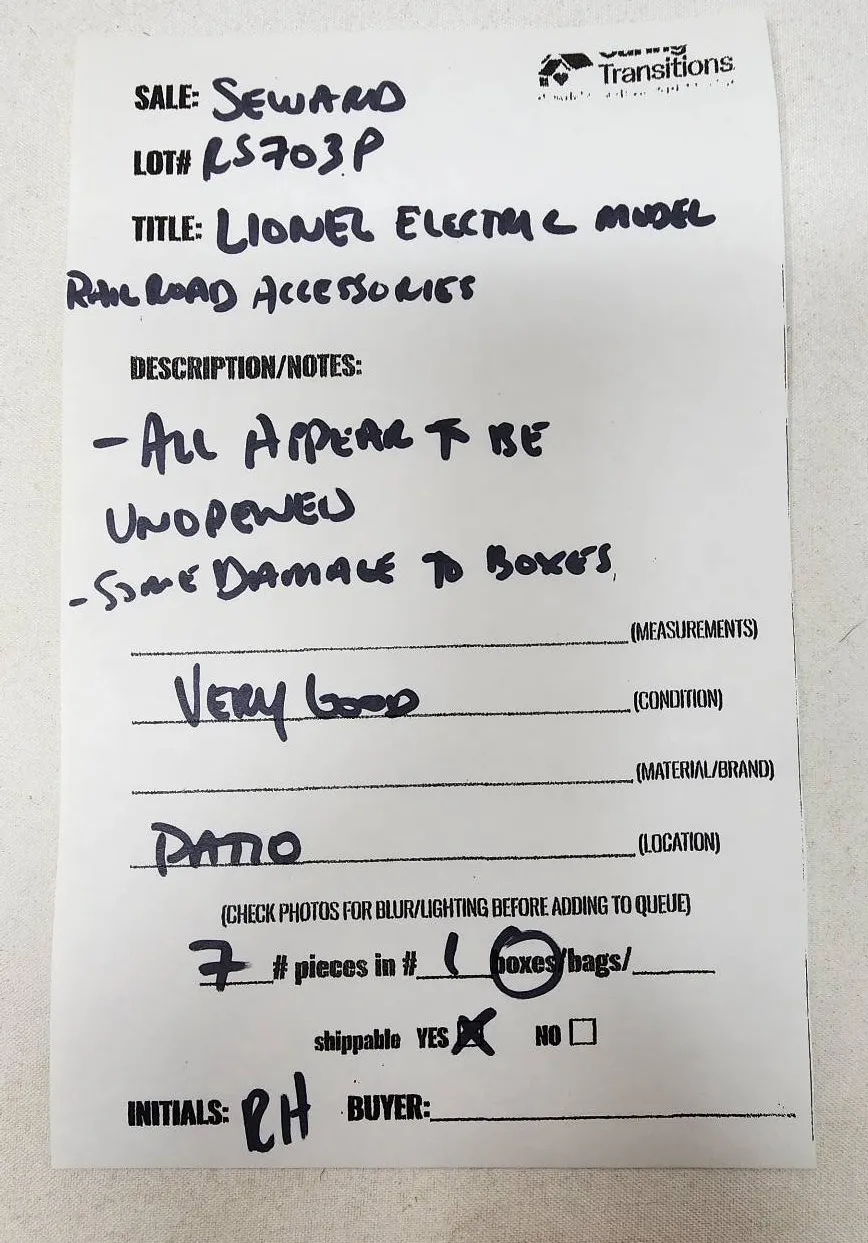 Transitions
SALE: SEWARD
LOT# RS703P
TITLE: LIONEL ELECTRIC MODEL
RAILROAD ACCESSORIES
DESCRIPTION/NOTES:
- ALL APPEAR TO BE
UNOPENED
- SOME DAMAGE TO BOXES
(MEASUREMENTS)
VERY GOOD (CONDITION)
(MATERIAL/BRAND)
PATIO (LOCATION)
(CHECK PHOTOS FOR BLUR/LIGHTING BEFORE ADDING TO QUEUE)
7 # pieces in # 1 boxes/bags/
shippable YES NO
INITIALS: RH BUYER: